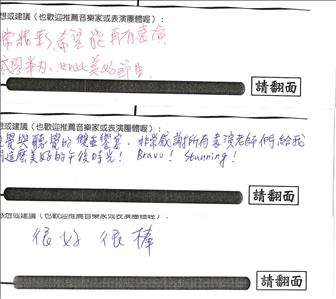 想或建議（也歡迎推薦音樂家或表演團體喔）：
常精彩，希望能再有表演
請翻面
想或建議（也歡迎推薦音樂家或表演團體喔）：
覺與聽覺的雙重饗宴，非常感謝所有表演老師們給我
們這麼美好的午後時光！ Bravo！ Stunning！
請翻面
感想或建議（也歡迎推薦音樂家或表演團體喔）：
很好 很棒
請翻面